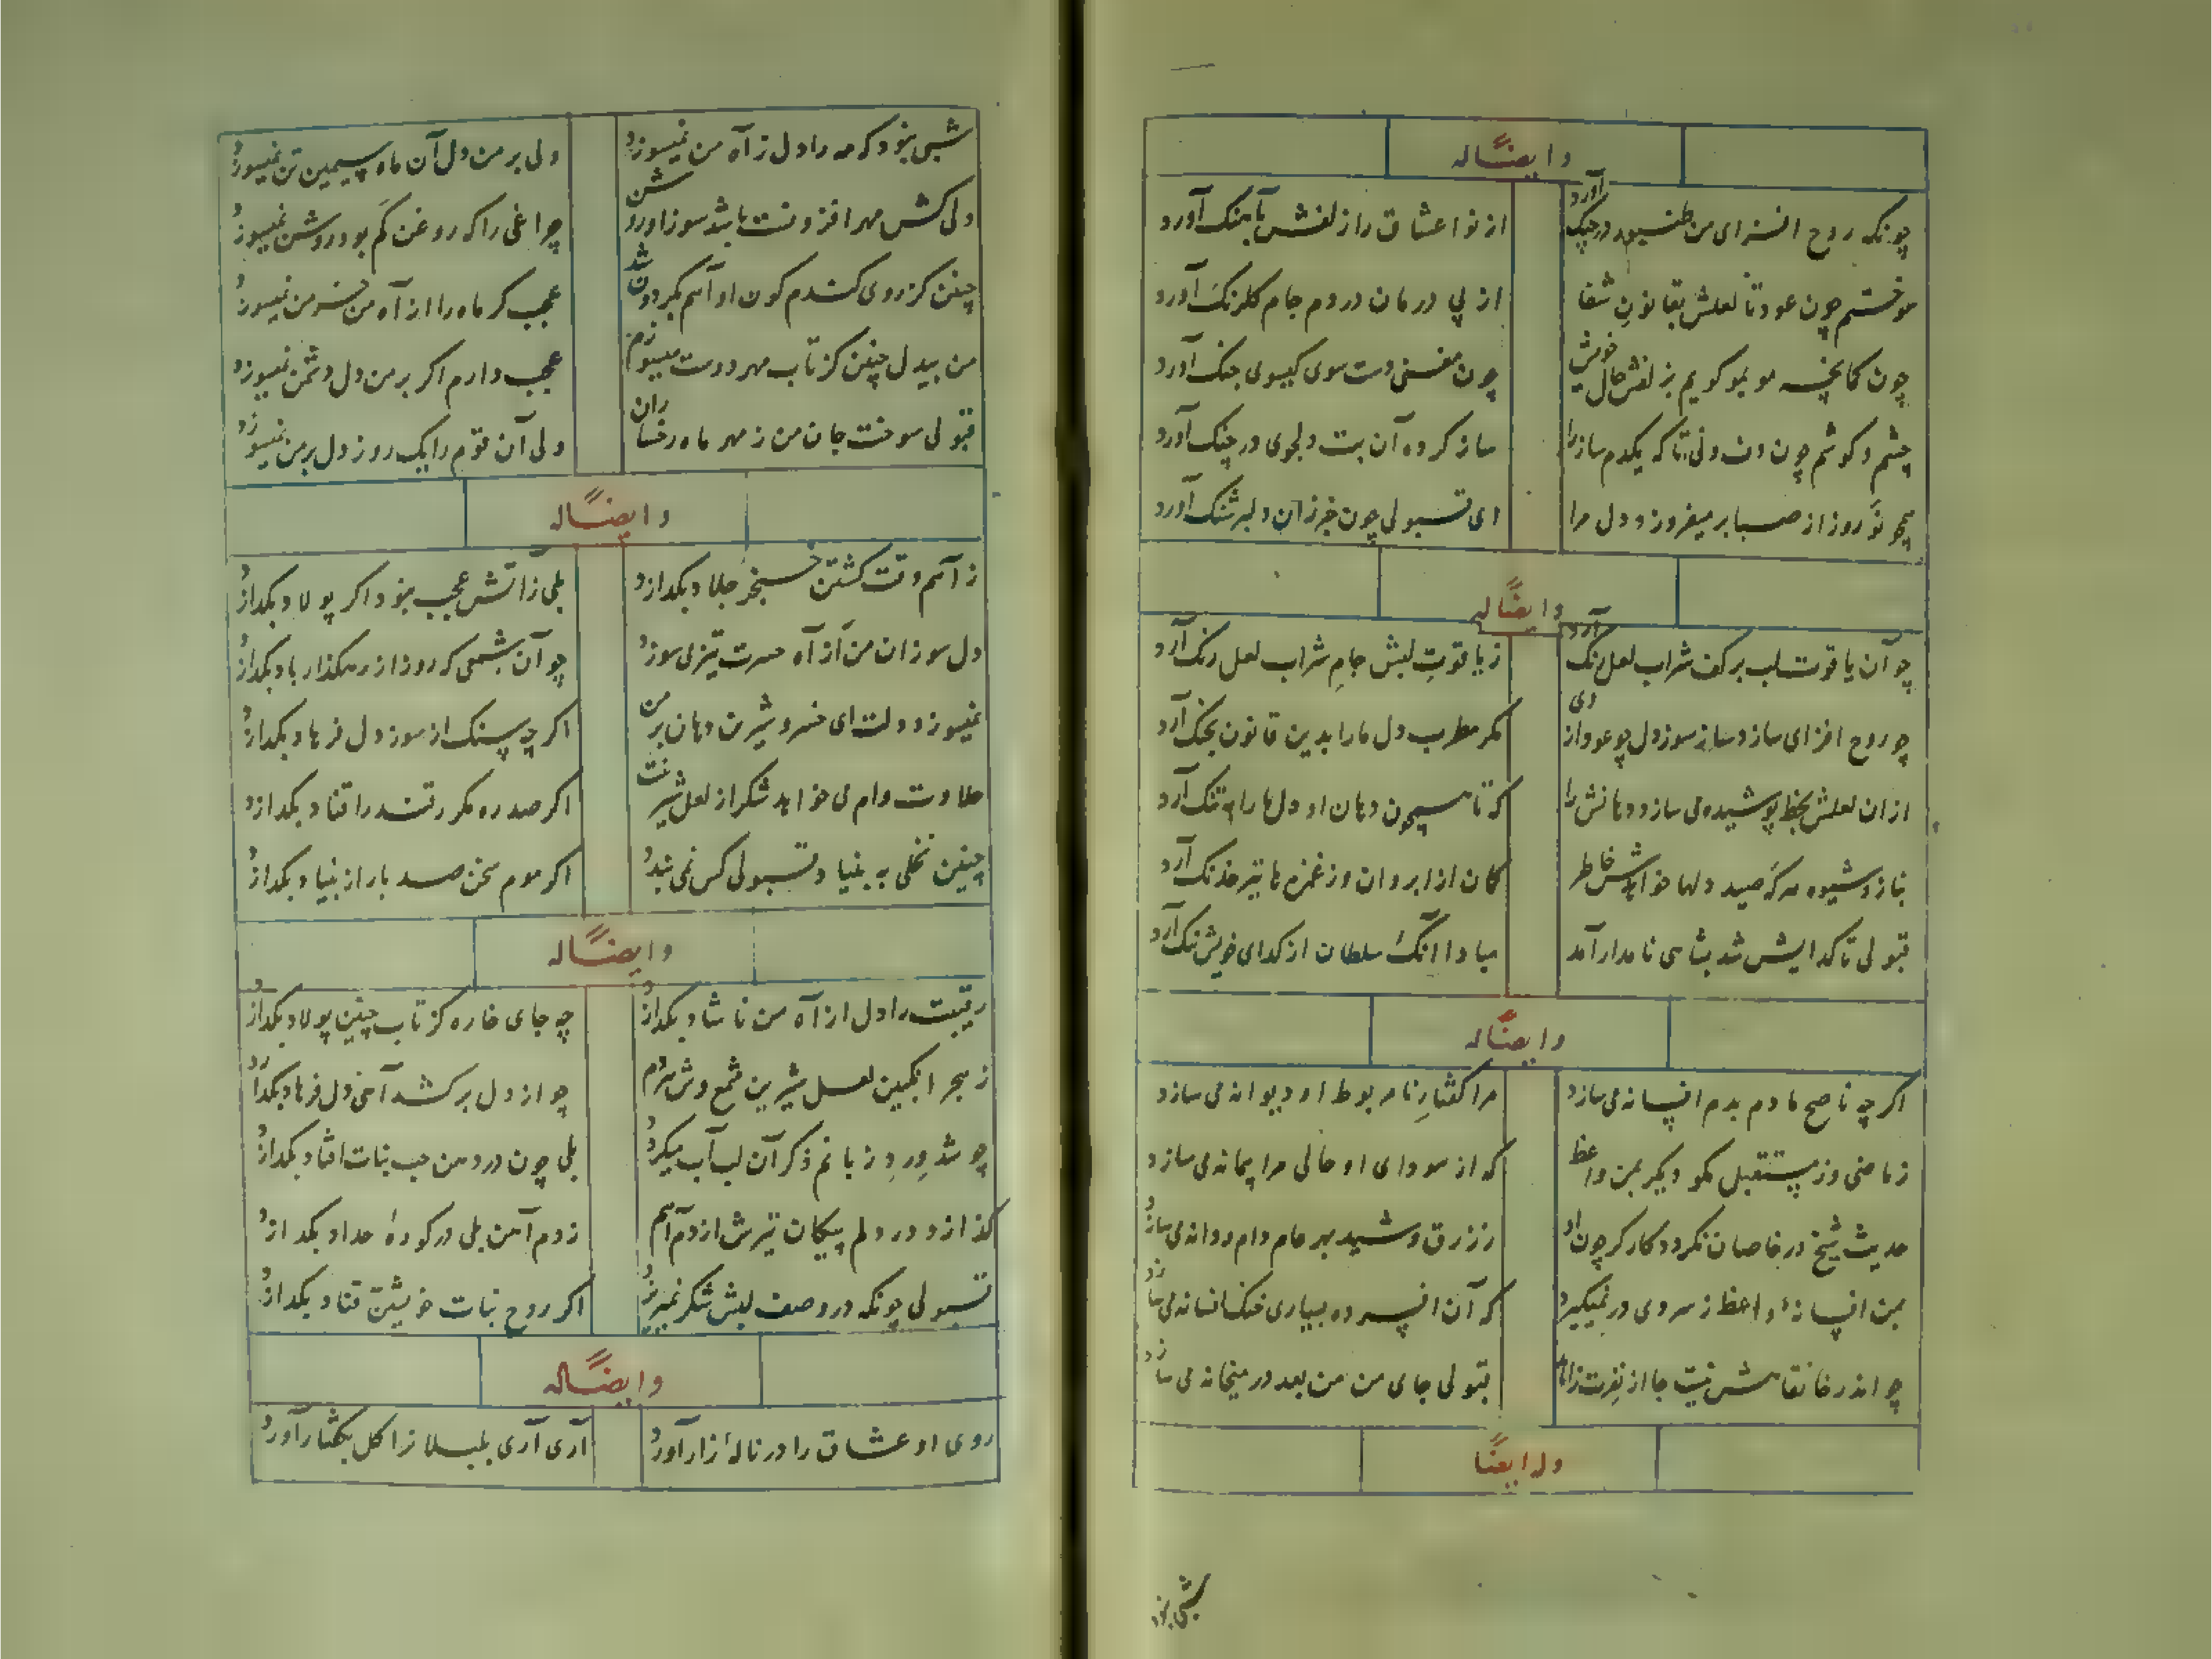 وایضاً له
چونکه روح افزای من طنبور در چنک آورد
از نوا عشاق را زلفش بآهنک آورد
سوختم چون عود تا لعلش بقانونِ شفا
از پی درمان دردم جام کلرنک آورد
چون کمانچه مو بمو کویم بزلفش حال خویش
چون مغنی دست سوی کیسوی چنک آورد
چشم و کوشم چون دف و نی تا که یکدم ساز را
ساز کرده آن بت دلجوی در چنک آورد
همچو نوروز از صبا بر میفروزد دل مرا
ای قبولی چون خبر زان دلبر شنک آورد
وایضاً له
چو آن یاقوت لب بر کف شراب لعل رنک آرد
ز یاقوتِ لبش جامِ شراب لعل رنک آرد
چو روح افزای سازد ساز سوز دل چو عود از وی
مکر مطرب دل ما را بدین قانون بچنک آرد
از ان لعلش بخط پوشیده می سازد دهانش را
که تا همچون دهان او دل ما را به تنک آرد
بناز و شیوه مه که صید دلها خواهدش خاطر
کمان از ابروان وز غمزه ها تیر خدنک آرد
قبولی تا کدایش شد بشاهی نامدار آمد
مبادا آنکه سلطان از کدای خویش ننک آرد
وایضاً له
اکر چه ناصح ما دم بدم افسانه می سازد
مرا کفتارِ نامربوط او دیوانه می سازد
ز ماضی وز مستقبل مکو دیکر بمن واعظ
که از سودای او حالی مرا پیمانه می سازد
حدیث شیخ در خاصان نکردد کارکر چون او
ز زرق و شید بهر عام دام و دانه می سازد
بمن افسانهٔ واعظ ز سردی در نمیکیرد
که آن افسرده بسیاری خنک افسانه می سازد
چو اندر خانقاهش نیست جا از نفرت زاهد
قبولی جای من من بعد در میخانه می سازد
وله ایضاً
شبی نبود
شبی نبود که مه را دل ز آه من نمیسوزد
ولی بر من دل آن ماه سیمین تن نمیسوزد
دلی کش مهر افزونست باشد سوز او روشن
چراغی را که روغن کم بود روشن نمیسوزد
چنین کز روی کندم کون او آهم بکردون شد
عجب کر ماه را از آه من خرمن نمیسوزد
من بیدل چنین کز تاب مهر دوست میسوزم
عجب دارم اکر بر من دل دشمن نمیسوزد
قبولی سوخت جان من ز مهر ماه رخساران
ولی آن قوم را یک روز دل بر من نمیسوزد
وایضاً له
ز آهم وقت کشتن خنجر جلاد بکدازد
بلی ز اتش عجب نبود اکر پولاد بکدازد
دل سوزان من از آه حسرت تیز می سوزد
چو آن شمعی که روز از رهکذار باد بکدازد
نمیسوزد دلت ای خسرو شیرین دهان بر من
اکر چه سنک از سوز دل فرهاد بکدازد
حلاوت وام می خواهد شکر از لعل شیرینت
اکر صد ره مکرر قند را قناد بکدازد
چنین نخلی به بنیاد قبولی کس نمی بندد
اکر موم سخن صد بار از بنیاد بکدازد
وایضاً له
رقیبت را دل از آه من ناشاد بکدازد
چه جای خاره کز تاب چنین پولاد بکدازد
ز هجر انکبین لعل شیرین شمع وش سوزم
چو از دل بر کشد آهی دل فرهاد بکدازد
چو شد وِردِ زبانم ذکر آن لب آب میکردد
بلی چون در دهن حب نبات افتاد بکدازد
کدازد در دلم پیکان تیرش از دم آهم
ز دم آهن بلی در کورهٔ حداد بکدازد
قبولی چونکه در وصف لبش شکر نمیریزد
اکر روح نبات خویشتن قناد بکدازد
وایضاً له
روی او عشاق را در نالهٔ زار آورد
آری آری بلبلان را کل بکفتار آورد